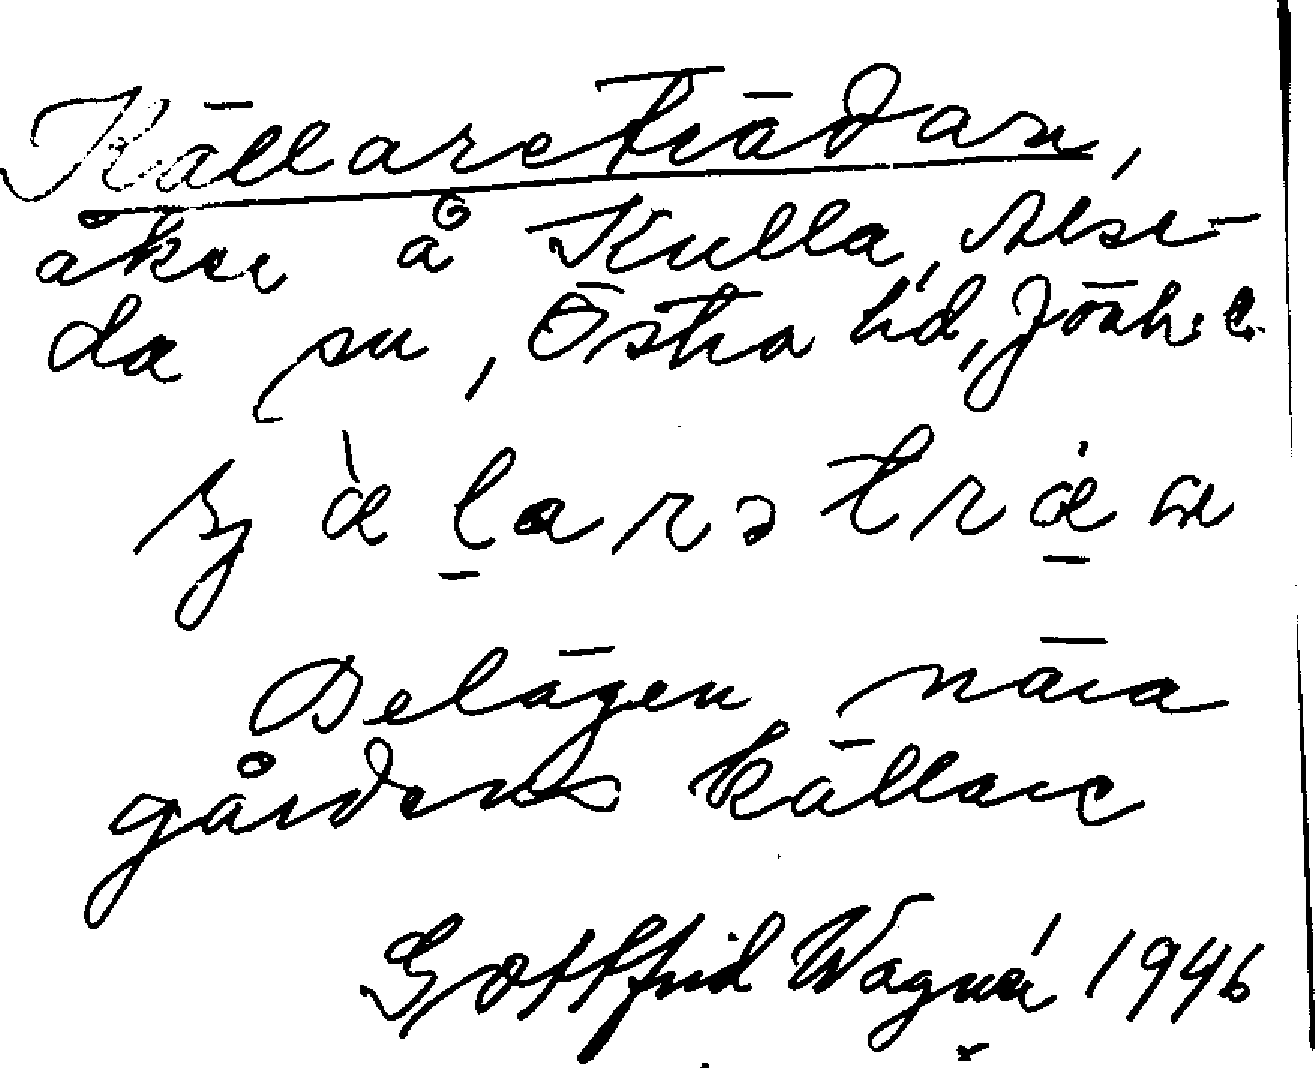 Källareträdan,
åker å Kulla, Alse-
da sn, Östra hd, Jönk. l.
Belägen nära
gårdens källare
Gottfrid Wagnér 1946